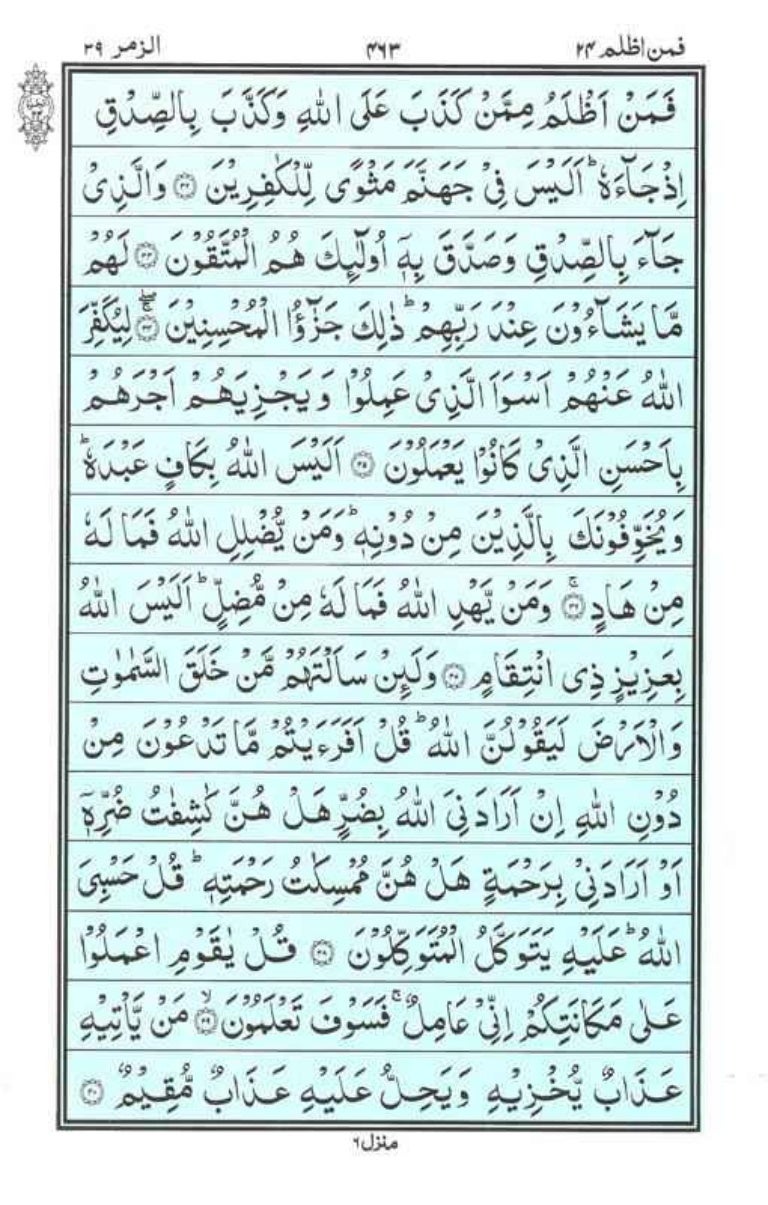 فمن اظلم ۲۴ ۴۶۳ الزمر ۳۹
فَمَنْ اَظْلَمُ مِمَّنْ كَذَبَ عَلَى اللّٰهِ وَكَذَّبَ بِالصِّدْقِ
اِذْ جَآءَهٗ ؕ اَلَيْسَ فِىْ جَهَنَّمَ مَثْوًى لِّلْكٰفِرِيْنَ ۝۳۲ وَالَّذِىْ
جَآءَ بِالصِّدْقِ وَصَدَّقَ بِهٖۤ اُولٰٓئِكَ هُمُ الْمُتَّقُوْنَ ۝۳۳ لَهُمْ
مَّا يَشَآءُوْنَ عِنْدَ رَبِّهِمْ ؕ ذٰلِكَ جَزٰٓؤُا الْمُحْسِنِيْنَ ۝۳۴ لِيُكَفِّرَ
اللّٰهُ عَنْهُمْ اَسْوَاَ الَّذِىْ عَمِلُوْا وَيَجْزِيَهُمْ اَجْرَهُمْ
بِاَحْسَنِ الَّذِىْ كَانُوْا يَعْمَلُوْنَ ۝۳۵ اَلَيْسَ اللّٰهُ بِكَافٍ عَبْدَهٗ ؕ
وَيُخَوِّفُوْنَكَ بِالَّذِيْنَ مِنْ دُوْنِهٖ ؕ وَمَنْ يُّضْلِلِ اللّٰهُ فَمَا لَهٗ
مِنْ هَادٍ ۚ ۝۳۶ وَمَنْ يَّهْدِ اللّٰهُ فَمَا لَهٗ مِنْ مُّضِلٍّ ؕ اَلَيْسَ اللّٰهُ
بِعَزِيْزٍ ذِى انْتِقَامٍ ۝۳۷ وَلَئِنْ سَاَلْتَهُمْ مَّنْ خَلَقَ السَّمٰوٰتِ
وَالْاَرْضَ لَيَقُوْلُنَّ اللّٰهُ ؕ قُلْ اَفَرَءَيْتُمْ مَّا تَدْعُوْنَ مِنْ
دُوْنِ اللّٰهِ اِنْ اَرَادَنِىَ اللّٰهُ بِضُرٍّ هَلْ هُنَّ كٰشِفٰتُ ضُرِّهٖۤ
اَوْ اَرَادَنِىْ بِرَحْمَةٍ هَلْ هُنَّ مُمْسِكٰتُ رَحْمَتِهٖ ؕ قُلْ حَسْبِىَ
اللّٰهُ ؕ عَلَيْهِ يَتَوَكَّلُ الْمُتَوَكِّلُوْنَ ۝۳۸ قُلْ يٰقَوْمِ اعْمَلُوْا
عَلٰى مَكَانَتِكُمْ اِنِّىْ عَامِلٌ ۚ فَسَوْفَ تَعْلَمُوْنَ ۙ ۝۳۹ مَنْ يَّاْتِيْهِ
عَذَابٌ يُّخْزِيْهِ وَيَحِلُّ عَلَيْهِ عَذَابٌ مُّقِيْمٌ ۝۴۰
منزل ۶